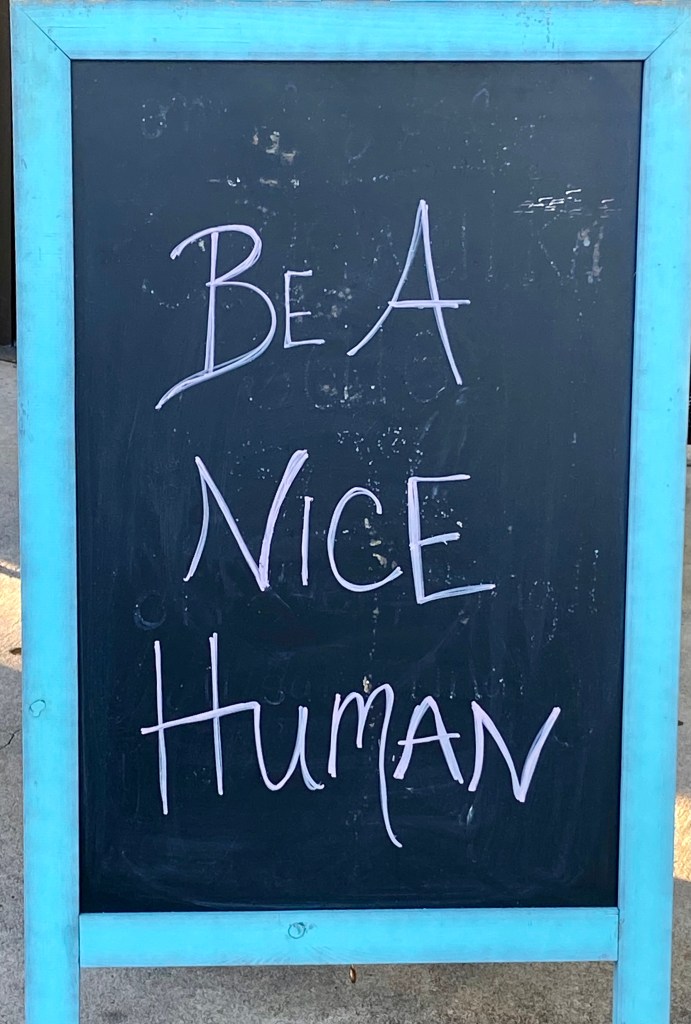 Be A
Nice
Human